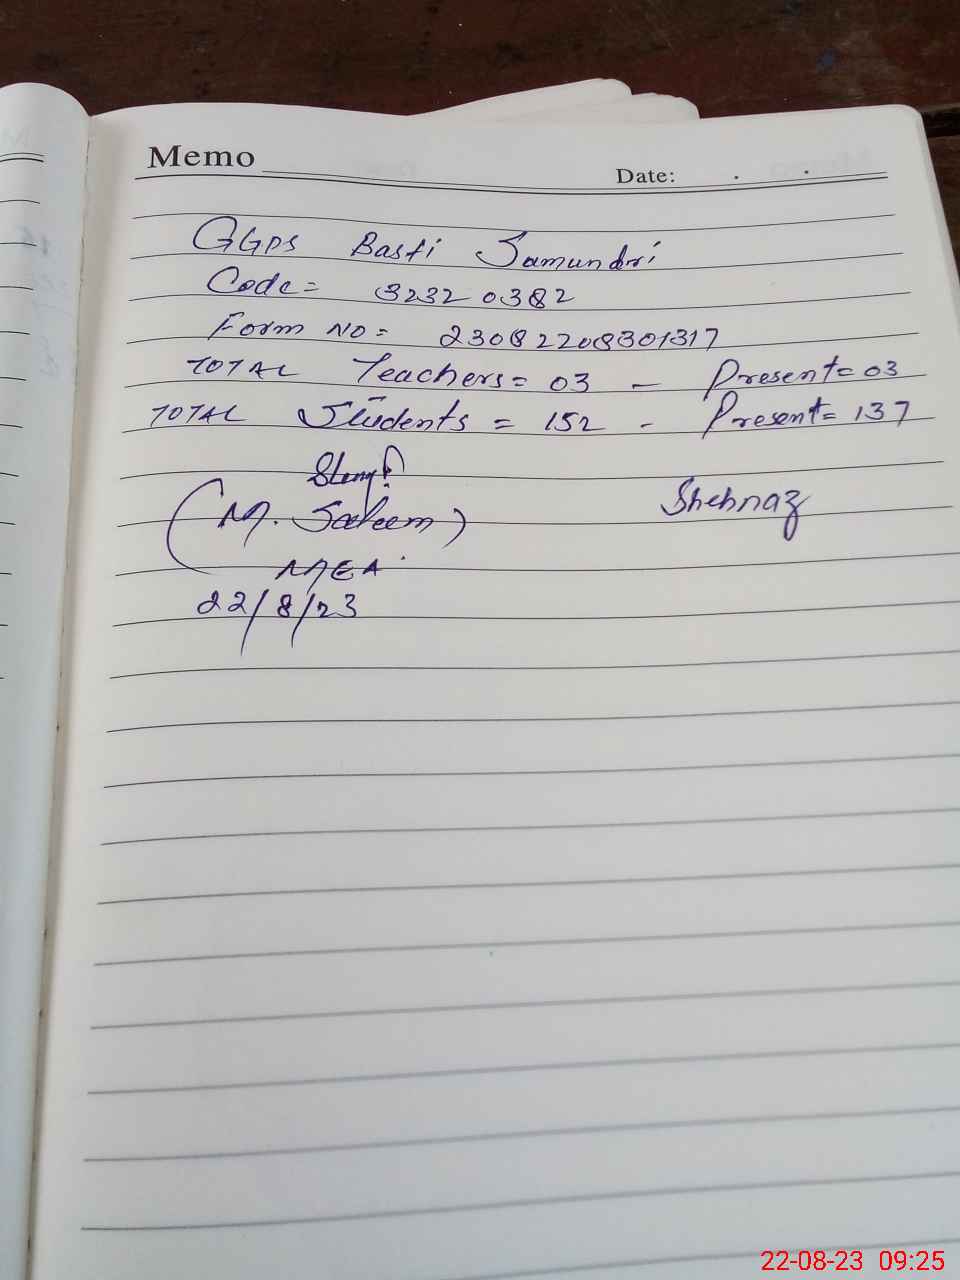 Memo
Date:
GGPS Basti Samundri
Code = 32320382
Form NO = 23082208301317
TOTAL Teachers = 03 - Present = 03
TOTAL Students = 152 - Present = 137
(M. Saleem)
Shehnaz
MEA
22/8/23
22-08-23 09:25